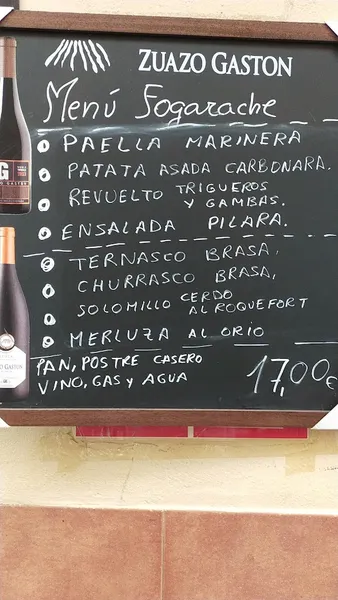 ZUAZO GASTON
Menú Fogarache
PAELLA MARINERA
PATATA ASADA CARBONARA.
REVUELTO TRIGUEROS
Y GAMBAS.
ENSALADA PILARA.
TERNASCO BRASA.
CHURRASCO BRASA,
SOLOMILLO CERDO
AL ROQUEFORT
MERLUZA AL ORIO
PAN, POSTRE CASERO
VINO, GAS Y AGUA
17,00€